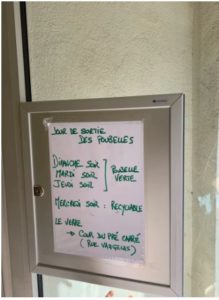 JOUR DE SORTIE
DES POUBELLES
DIMANCHE SOIR
MARDI SOIR
JEUDI SOIR
POUBELLE
VERTE
MERCREDI SOIR : RECYCLABLE
LE VERRE
→ COUR DU PRÉ CARRÉ
(RUE